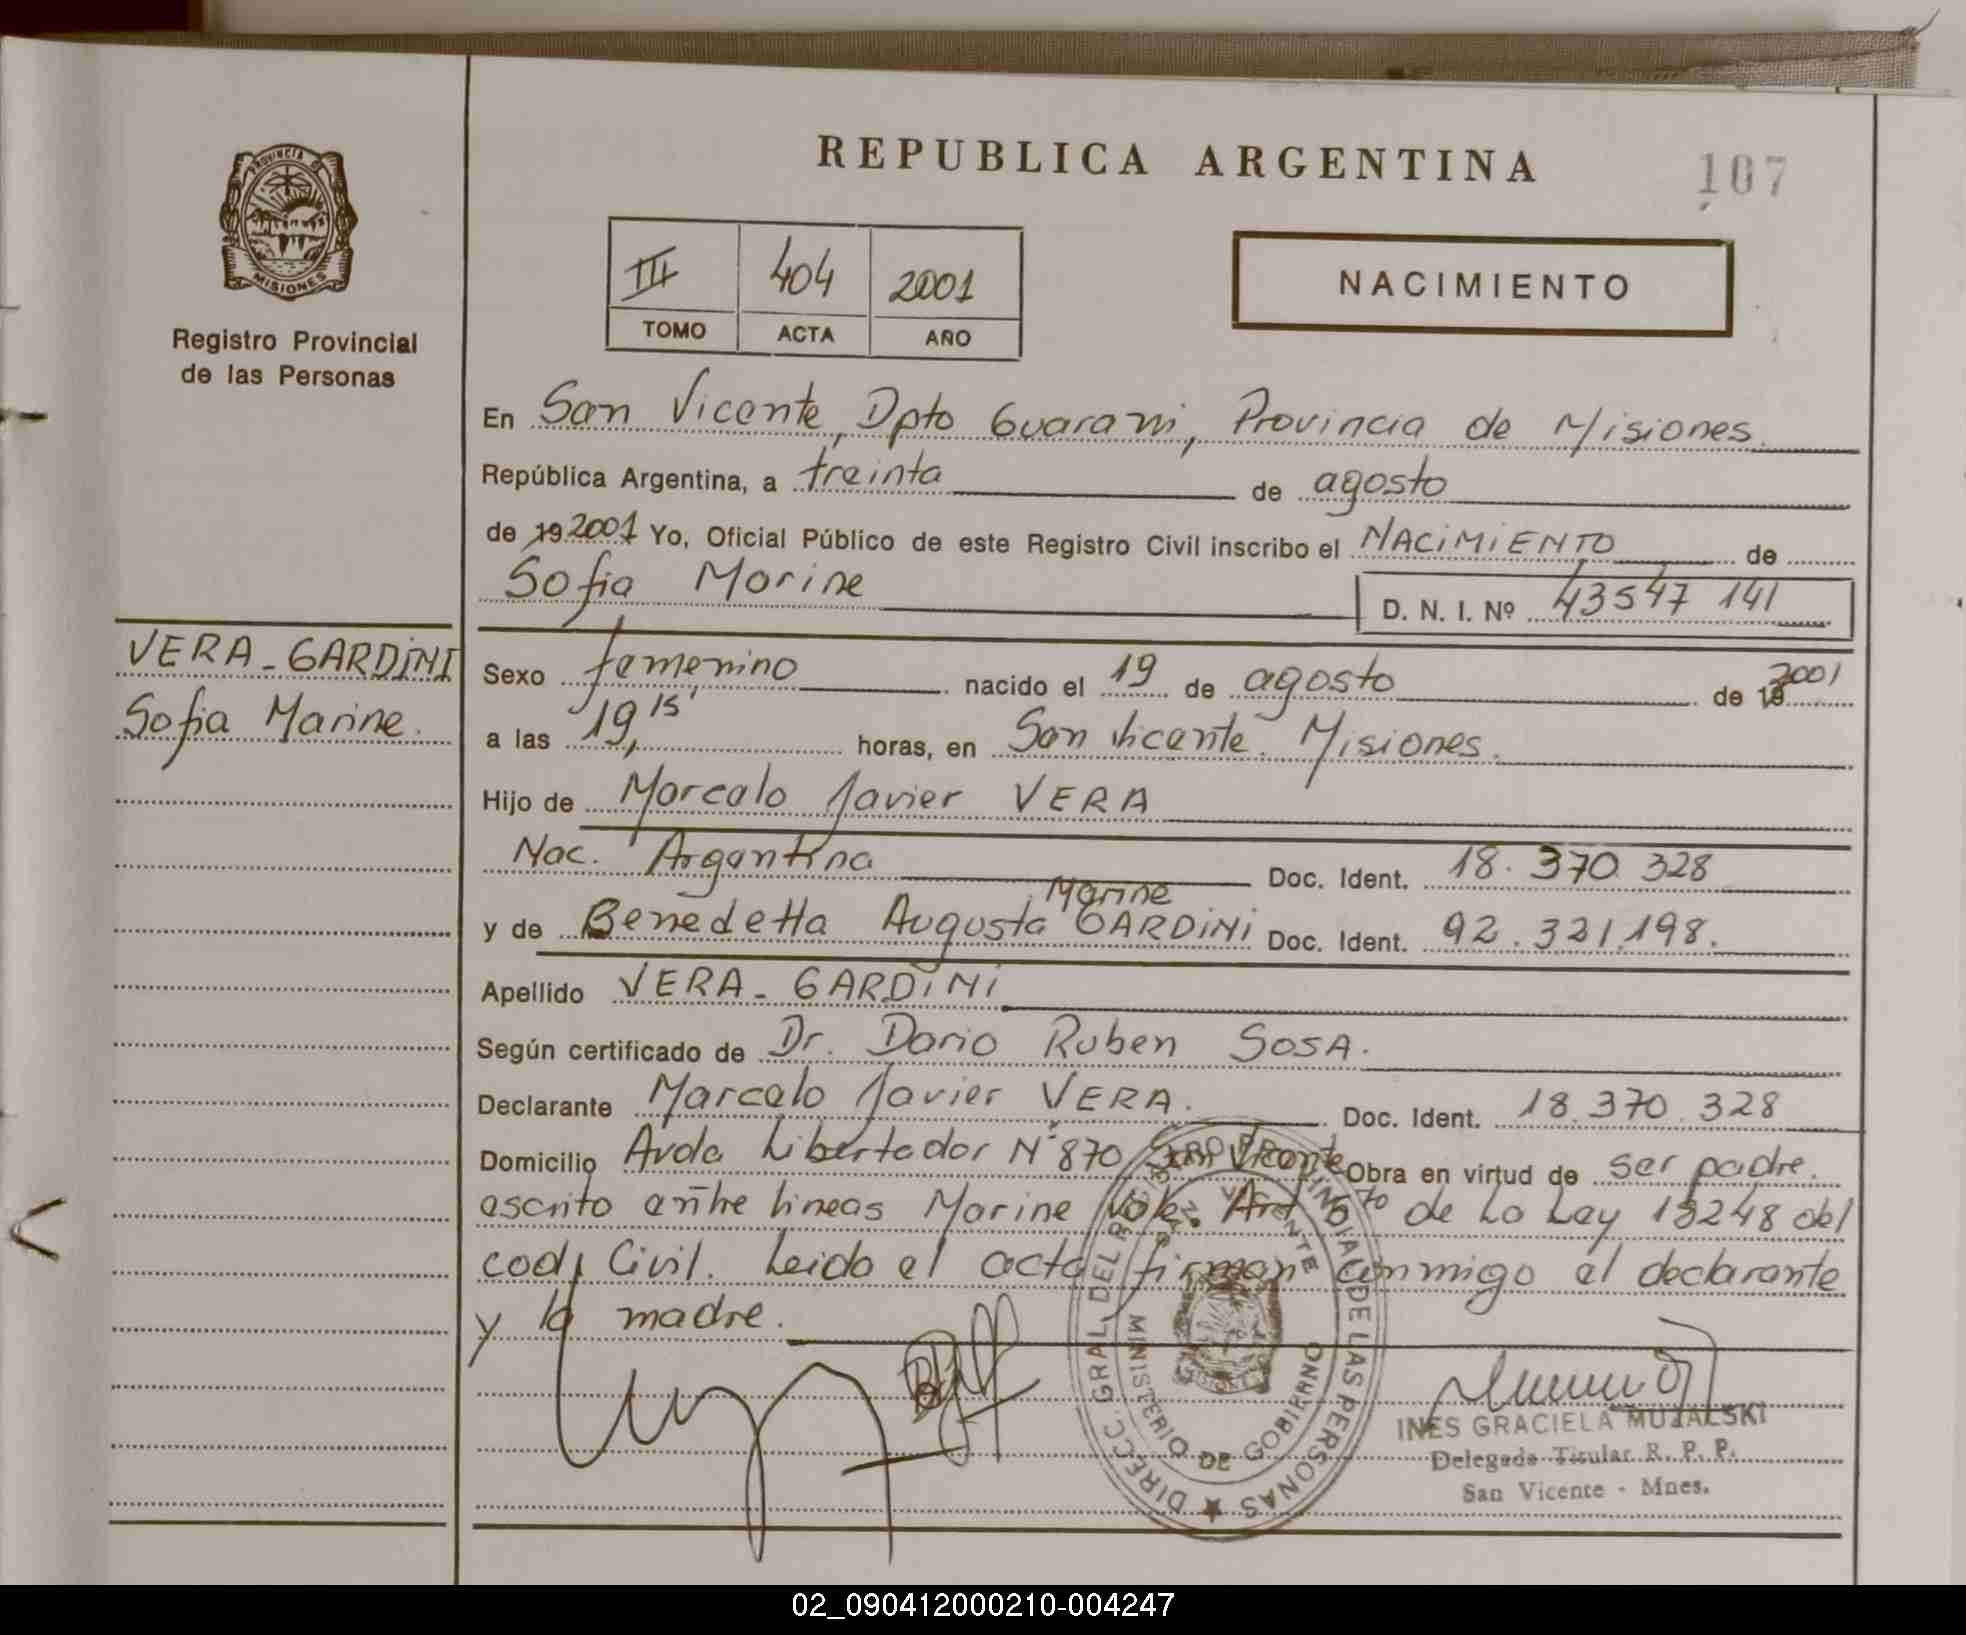 REPUBLICA ARGENTINA
107
PROVINCIA DE
MISIONES
Registro Provincial
de las Personas
III 404 2001
TOMO ACTA AÑO
NACIMIENTO
En San Vicente, Dpto Guarani, Provincia de Misiones
República Argentina, a treinta de agosto
de 19 2001 Yo, Oficial Público de este Registro Civil inscribo el NACIMIENTO de
Sofia Marine
D. N. I. Nº 43547 141
VERA - GARDINI
Sofia Marine.
Sexo femenino nacido el 19 de agosto de 19 2001
a las 19,15' horas, en San Vicente. Misiones.
Hijo de Marcelo Javier VERA
Nac. Argentina Doc. Ident. 18.370 328
Marine
y de Benedetta Augusta GARDINI Doc. Ident. 92.321.198.
Apellido VERA - GARDINI
Según certificado de Dr. Dario Ruben SOSA.
Declarante Marcelo Javier VERA. Doc. Ident. 18.370.328
Domicilio Avda Libertador Nº 870 San Vicente Obra en virtud de ser padre.
escrito entre lineas Marine Vale. Art 6to de La Ley 18248 del
cod. Civil. Leido el acta firman conmigo el declarante
y la madre.
DIRECC. GRAL. DEL REGISTRO PROVINCIAL DE LAS PERSONAS
MINISTERIO DE GOBIERNO
INES GRACIELA MUZALSKI
Delegada Titular R. P. P.
San Vicente - Mnes.
02_090412000210-004247